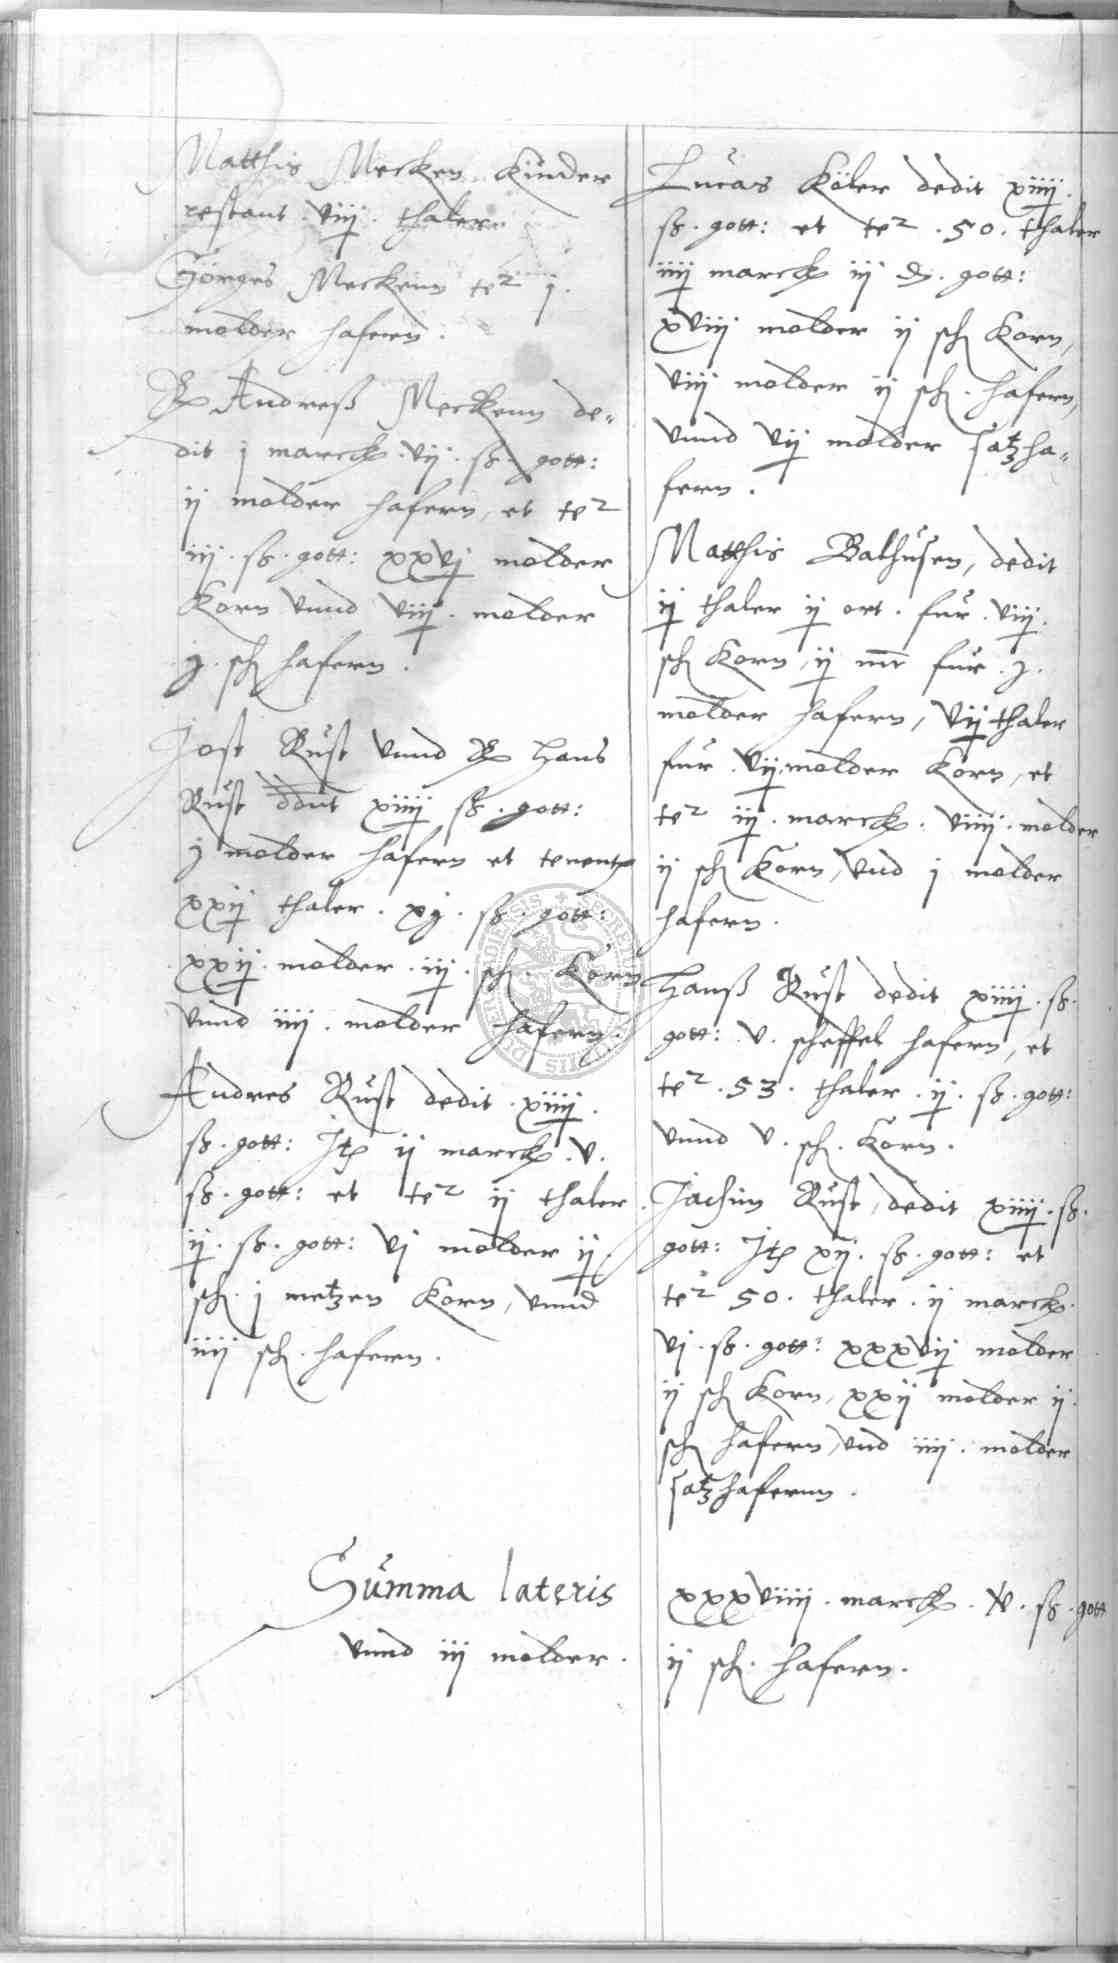 Matthis Mecken Kinder
restant . viij . thaler
Görges Meckenn te² j.
molder hafern .
Andreß Meckenn de=
dit j marck . vij . ß . gott:
ij molder hafern, et te²
iij . ß . gott: xxvj molder
Korn vnnd viij . molder
j . sch hafern .
Jost Rust vnnd Hans
Rust ddnt xiiij ß . gott:
j molder hafern et tenent
xxij thaler . xj . ß . gott:
xxij . molder . iij . sch . Korn
vnnd iiij . molder hafern .
Andres Rust dedit . xiiij .
ß . gott: Jt ij marck . v .
ß . gott: et te² ij thaler .
ij . ß . gott: vj molder ij .
sch . j metzen Korn, vnnd
iiij sch . hafern .
Lucas Köler dedit xiiij .
ß . gott: et te² . 50 . thaler
iiij marck iij . gott:
xviij molder ij sch Korn,
viij molder ij sch . hafern,
vnnd vij molder satzha=
fern .
Matthis Balhusen, dedit
ij thaler ij ort . fur . viij .
sch Korn, ij mr fur . j .
molder hafern, vij thaler
fur . vij molder Korn, et
te² iij . marck . viiij . molder
ij sch Korn, vnd j molder
hafern .
Hanß Rust dedit xiiij . ß .
gott: v . scheffel hafern, et
te² . 53 . thaler . ij . ß . gott:
vnnd v . sch . Korn .
Jachim Rust, dedit xiiij . ß .
gott: Jt xij . ß . gott: et
te² 50 . thaler . ij marck .
vj . ß . gott: xxxvij molder
ij sch Korn, xxij molder ij .
sch hafern, vnd iiij . molder
satzhafernn .
Summa lateris xxxviiij . marck . v . ß . gott
vnnd iij molder . ij sch . hafern .